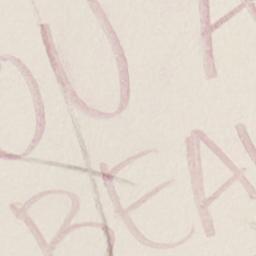 OU A
BEA